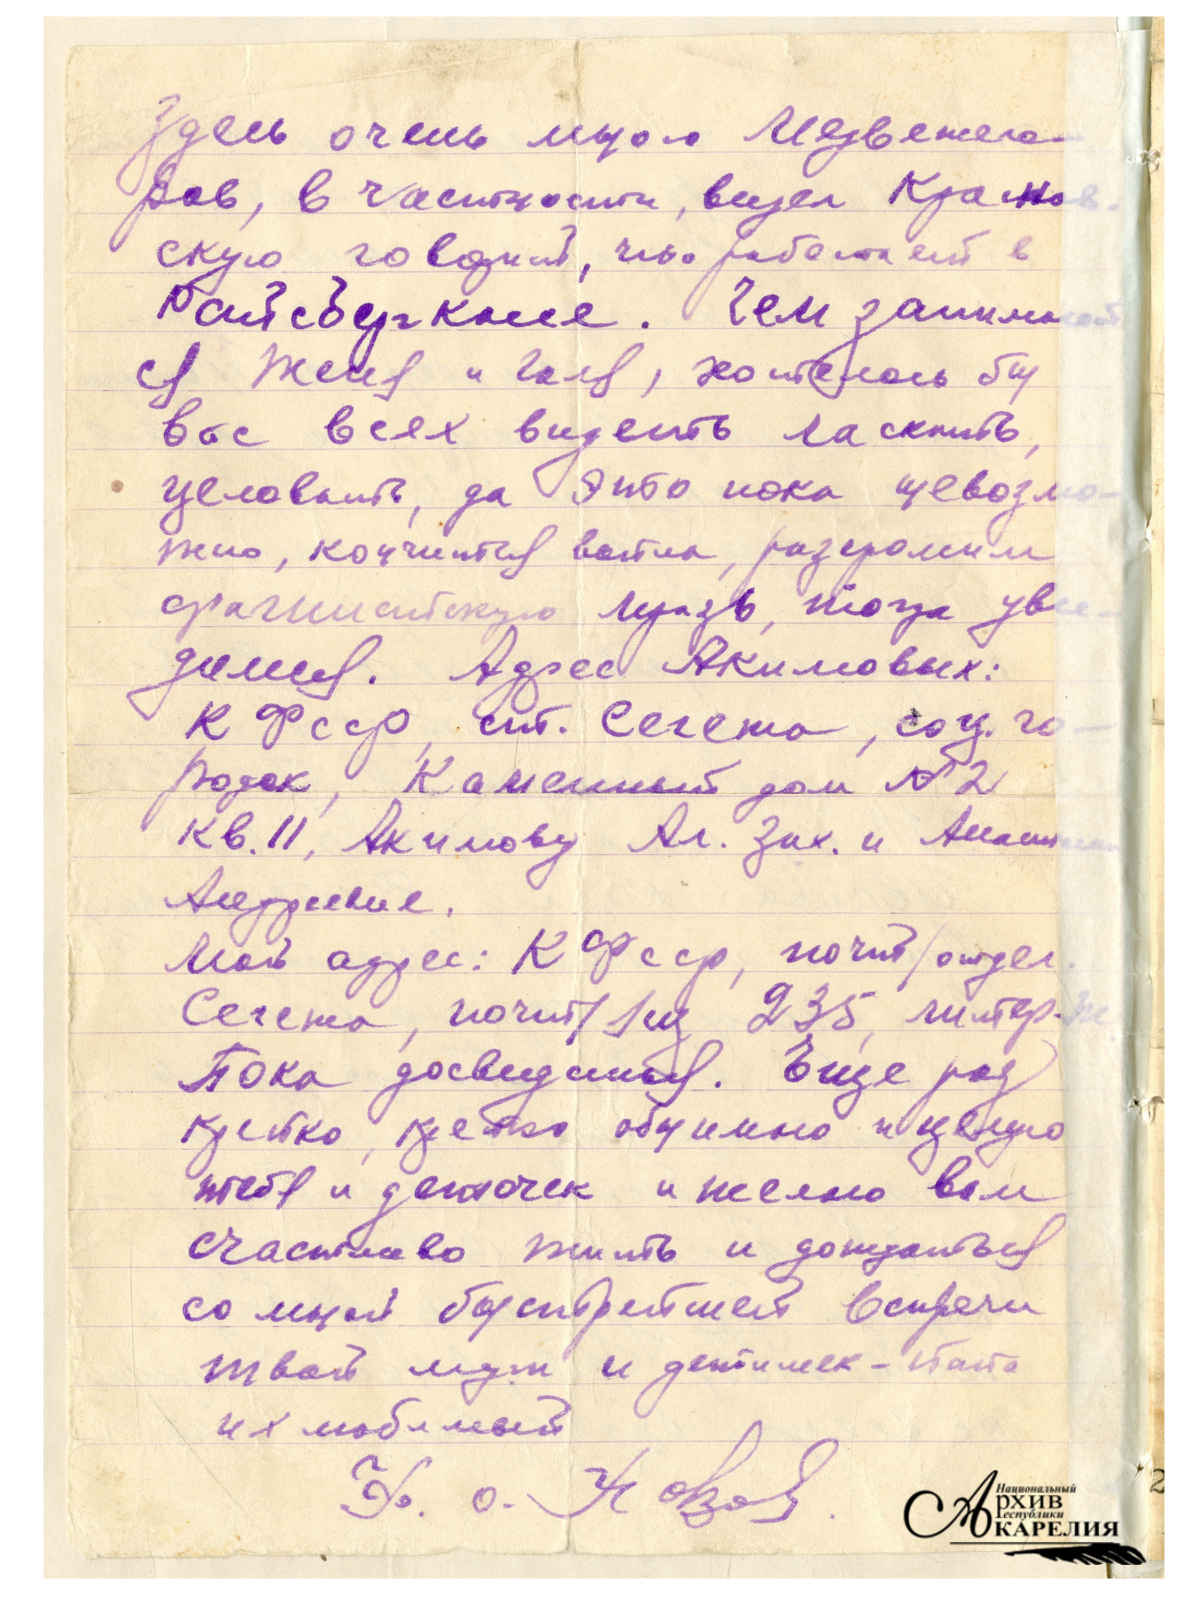 Здесь очень много Медвежего-
ров, в частности, видел Краснов-
скую говорит, что работает в
Чем занимают
ся Женя и Галя, хотелось бы
вас всех видеть ласкать,
целовать, да это пока невозмо-
жно, кончится война, разгромим
фашистскую мразь, тогда уви-
димся. Адрес Акимовых:
КФССР, ст. Сегежа, соц. го-
родок, Каменный дом №2
кв. 11, Акимову Ал. Зах. и
Андреевне.
Мой адрес: КФССР, почт/отдел.
Сегежа, почт/ящ 235, литер. Ж
Пока досвиданья. Еще раз
крепко, крепко обнимаю и целую
тебя и деточек и желаю вам
счастливо жить и дождаться
со мной быстрейшей встречи
твой муж и детишек - папа
их любимый
Национальный
Архив
Республики
Карелия
2